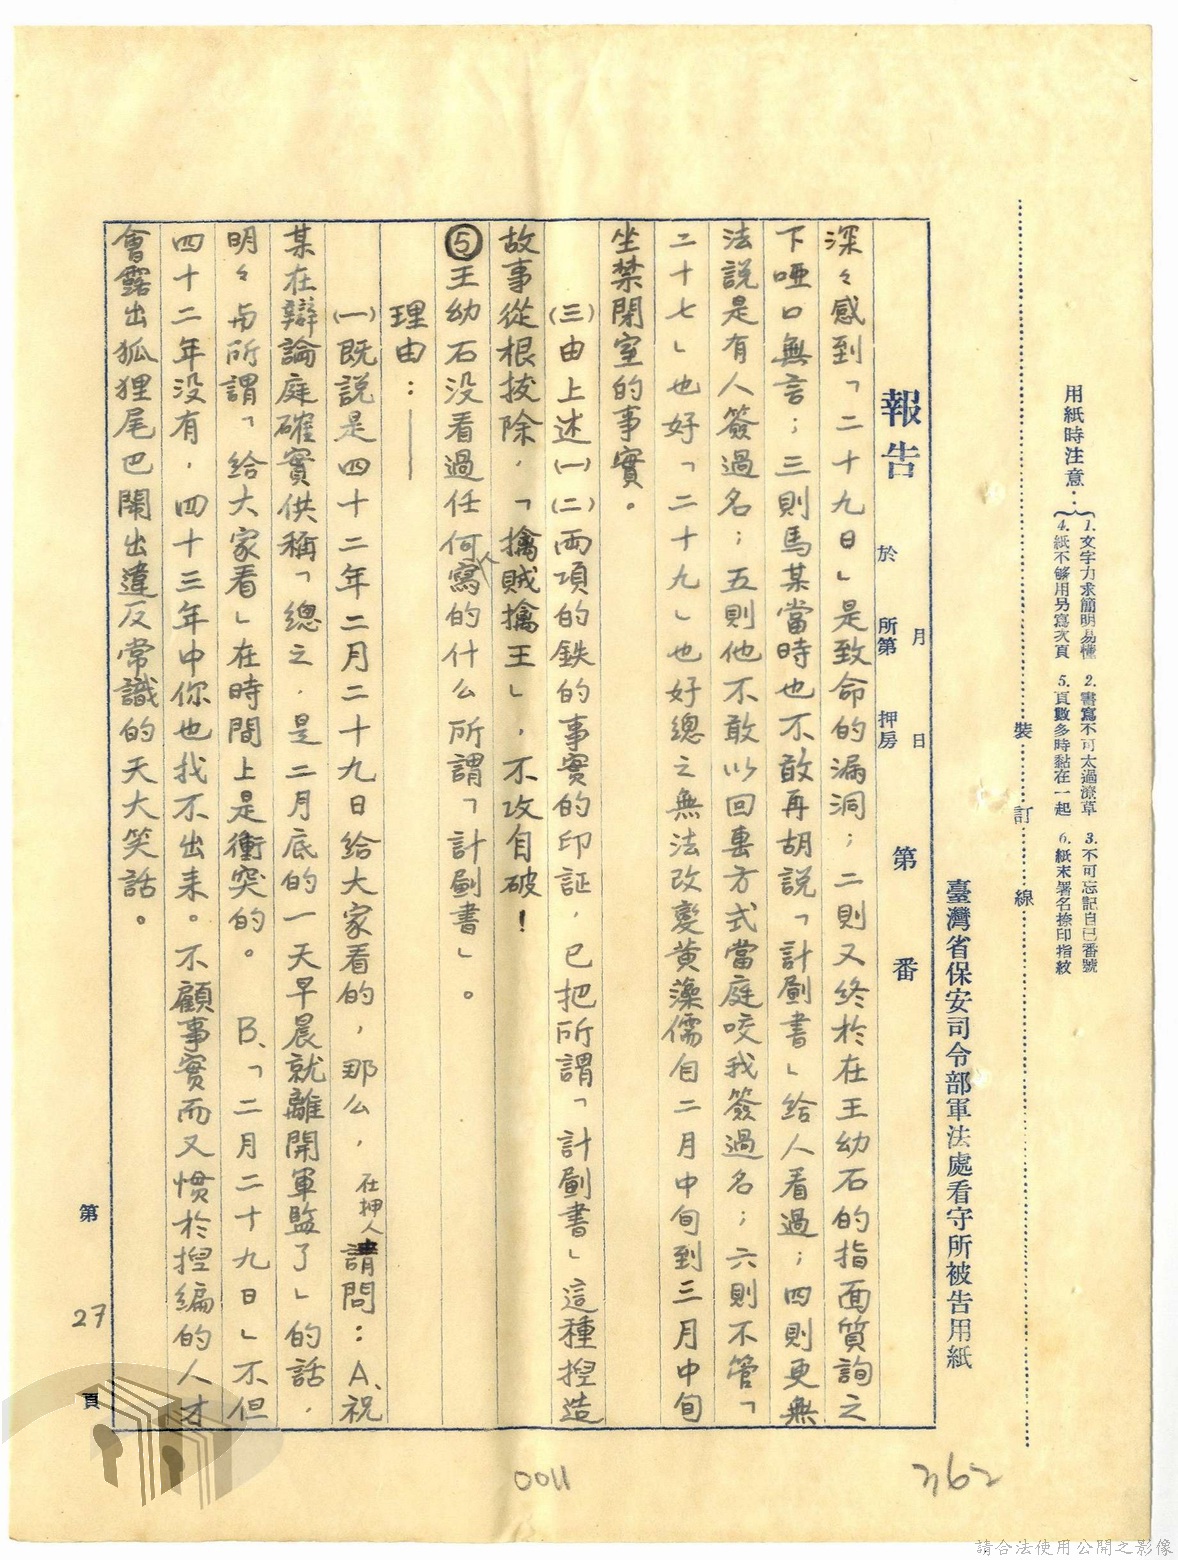 用紙時注意：
1. 文字力求簡明易懂 2. 書寫不可太過潦草 3. 不可忘記自己番號
4. 紙不够用另寫次頁 5. 頁數多時黏在一起 6. 紙末署名捺印指紋
裝 訂 線
臺灣省保安司令部軍法處看守所被告用紙
報告 於 月 日 所第 押房 第 番
深々感到「二十九日」是致命的漏洞；二則又終於在王幼石的指面質詢之
下啞口無言；三則馬某當時也不敢再胡說「計劃書」給人看過；四則更無
法說是有人簽過名；五則他不敢以回裏方式當庭咬我簽過名；六則不管「
二十七」也好「二十九」也好總之無法改變黄藻儒自二月中旬到三月中旬
坐禁閉室的事實。
(三)由上述(一)(二)兩項的鉄的事實的印証，已把所謂「計劃書」這種揑造
故事從根拔除，「擒賊擒王」，不攻自破！
⑤王幼石没看過任何人寫的什么所謂「計劃書」。
理由：——
(一)既説是四十二年二月二十九日給大家看的，那么，在押人請問：A、祝
某在辯論庭確實供稱「總之，是二月底的一天早晨就離開軍監了」的話，
明々与所謂「給大家看」在時間上是衝突的。 B、「二月二十九日」不但
四十二年没有，四十三年中你也找不出来。不顧事實而又慣於揑編的人才
會露出狐狸尾巴鬧出違反常識的天大笑話。
第 27 頁
0011
362
請合法使用公開之影像